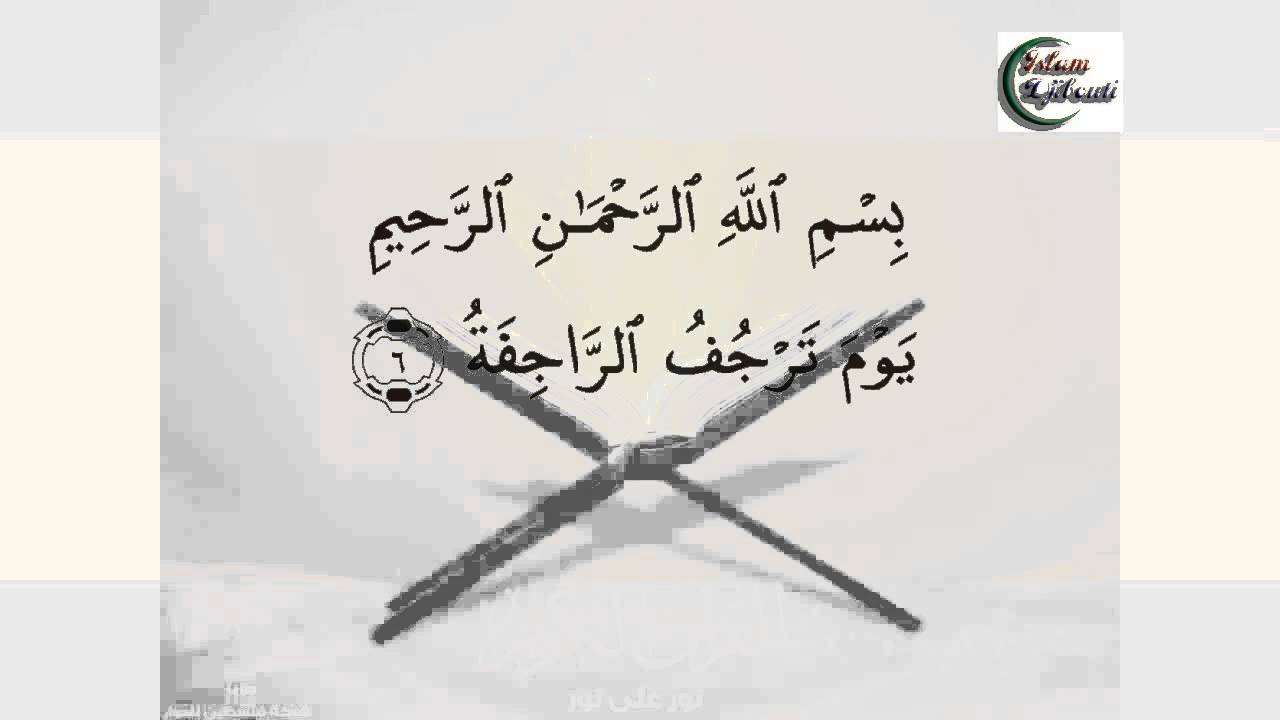 Islam
Djibouti
بِسْمِ ٱللَّهِ ٱلرَّحْمَٰنِ ٱلرَّحِيمِ
يَوْمَ تَرْجُفُ ٱلرَّاجِفَةُ ٦
نور على نور